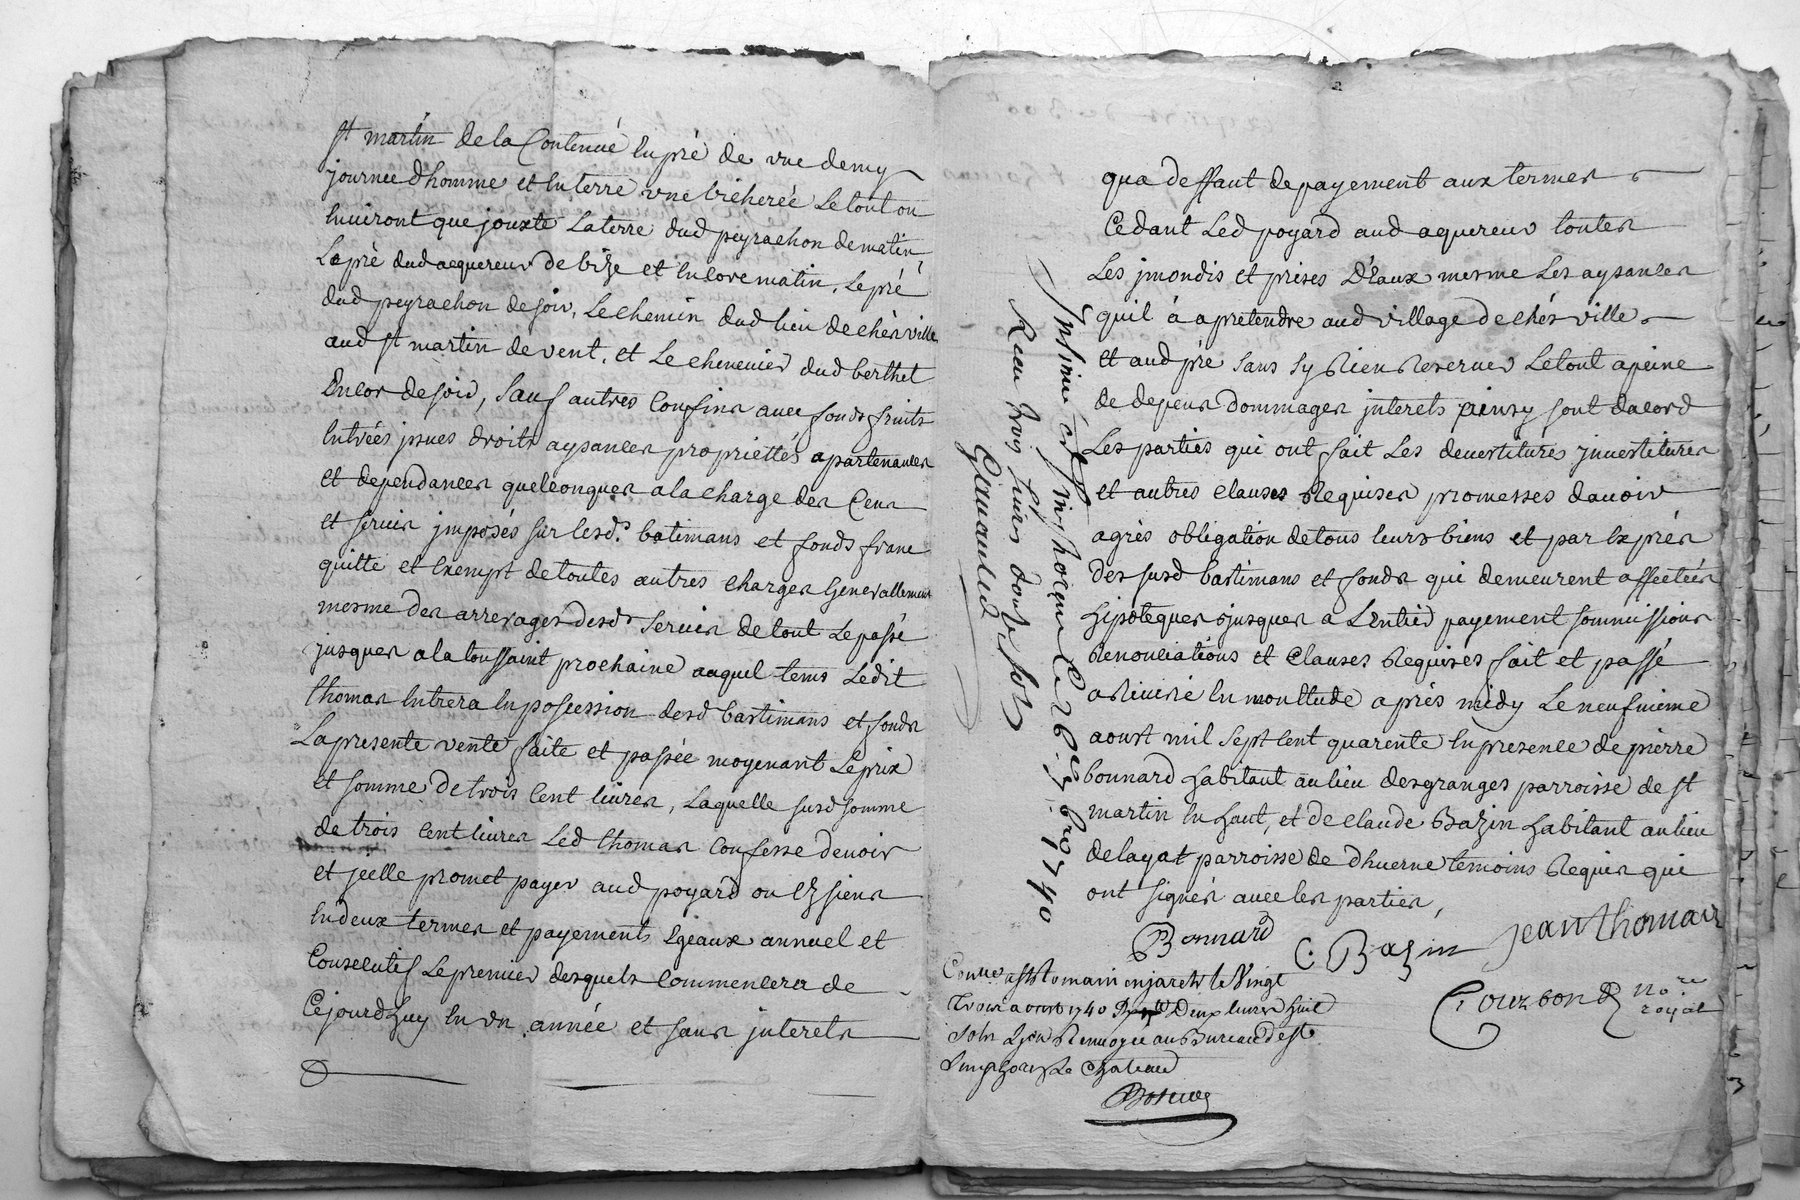 st martin de la Contenue En pré de vne demy
journee dhomme et En terre vne bicheréé Le tout ou
Enuiront que jouxte La terre dud peyrachon de matin
Le pré dud acquereur de bize et Encore matin, Le pré
dud peyrachon de soir, Le chemin dud lieu de chés ville
aud st martin de vent, et Le chenevier dud berthet
Encor de soir, Sauf autres Confins avec fonds fruits
Entrées jssues droits aysances propriettés apartenances
et dependances quelconques a la charge des Cens
et servis jmposés sur lesd. batimans et fonds franc
quitte et Exempt de toutes autres charges Generallement
mesme des arrerages desd servis de tout Le passé
jusques a la toussaint prochaine auquel tems Ledit
thomas Entrera En possession desd bastimans et fonds
La presente vente faite et passée moyenant Le prix
et somme de trois Cent livres, Laquelle susd somme
de trois Cent livres Led thomas Confesse devoir
et jcelle promet payer aud poyard ou Ez siens
En deux termes et payements Egeaux annuel et
Consecutif Le premier desquels Commencera de
Cejourdhuy En vn année et sans jnterets
qua deffaut de payement aux termes
Cedant Led poyard aud aquereur toutes
Les jmondis et prises D'Eaux mesme Les aysances
quil á a prétendre aud village de chés ville
et aud pré sans sy Rien Reserver Le tout a peine
de depens dommages jnterets ainsy sont dacord
Les parties qui ont fait Les devestitures jnvestitures
et autres clauses Requises promesses davoir
agrés obligation de tous leurs biens et par Exprés
des susd bastimans et fonds qui demeurent affectées
hipotequés jusques a L'Entier payement sommissions
Renonciations et Clauses Requises fait et passé
a Riverie En moultude après midy Le neufvieme
aoust mil sept Cent quarente En presence de pierre
bonnard habitant au lieu des granges parroisse de st
martin En haut, et de claude Bazin habitant au lieu
de lagat parroisse de dhuerne temoins Requis qui
ont signés avec les parties,
Bonnard C. Bazin jean thomas
Gourbon No.re
royal
Con.lle a st Romain en jarets le Vingt
Trois aoust 1740 Reçu Deux livres huit
Sols Renvoyee au Bureau de st
Simphorien Le Chateau
Insinué a st simphorien le 26 7bre 1740
Reçu trois livres douze sols